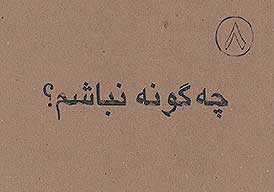 ۸
چه گونه نباشم؟